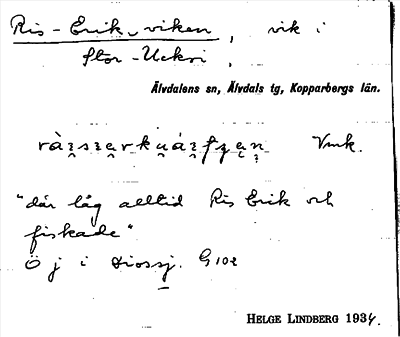 Ris-Erik-viken, vik i
Stor-Ucksi,
Älvdalens sn, Älvdals tg, Kopparbergs län.
Vmk.
"där låg alltid Ris Erik och
fiskade"
Ö j i
HELGE LINDBERG 1934.